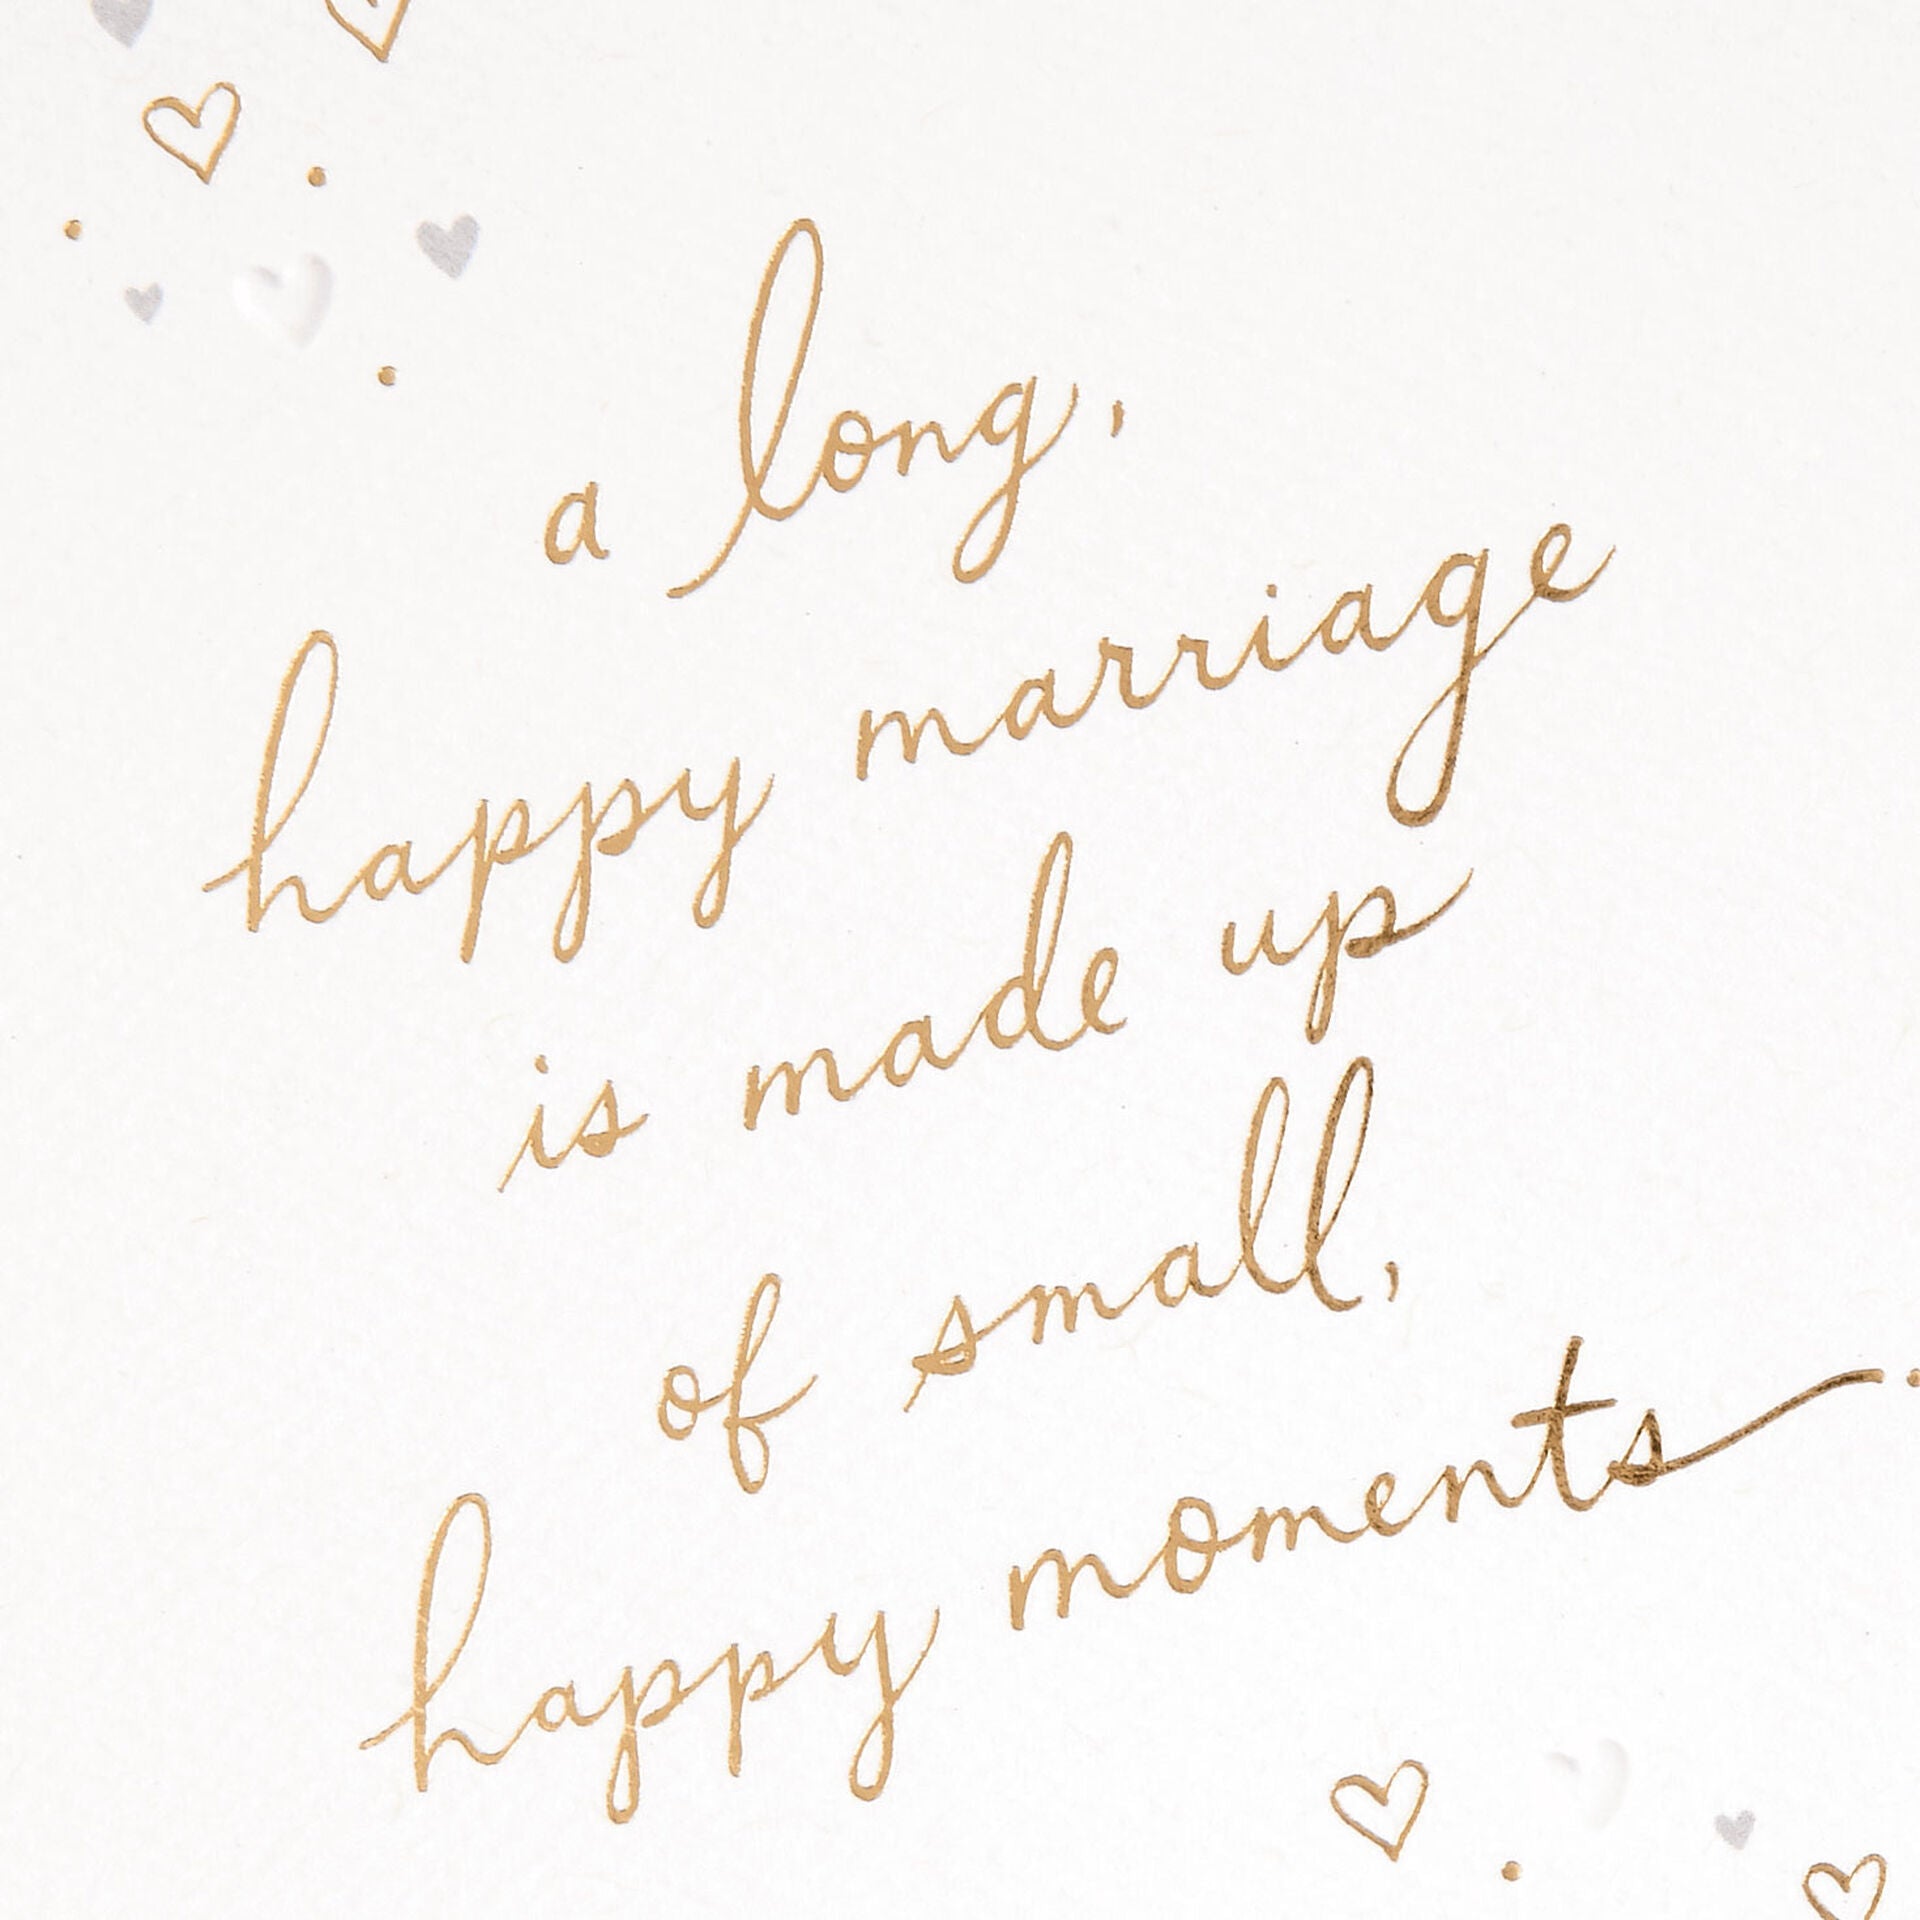 a long,
happy marriage
is made up
of small,
happy moments.